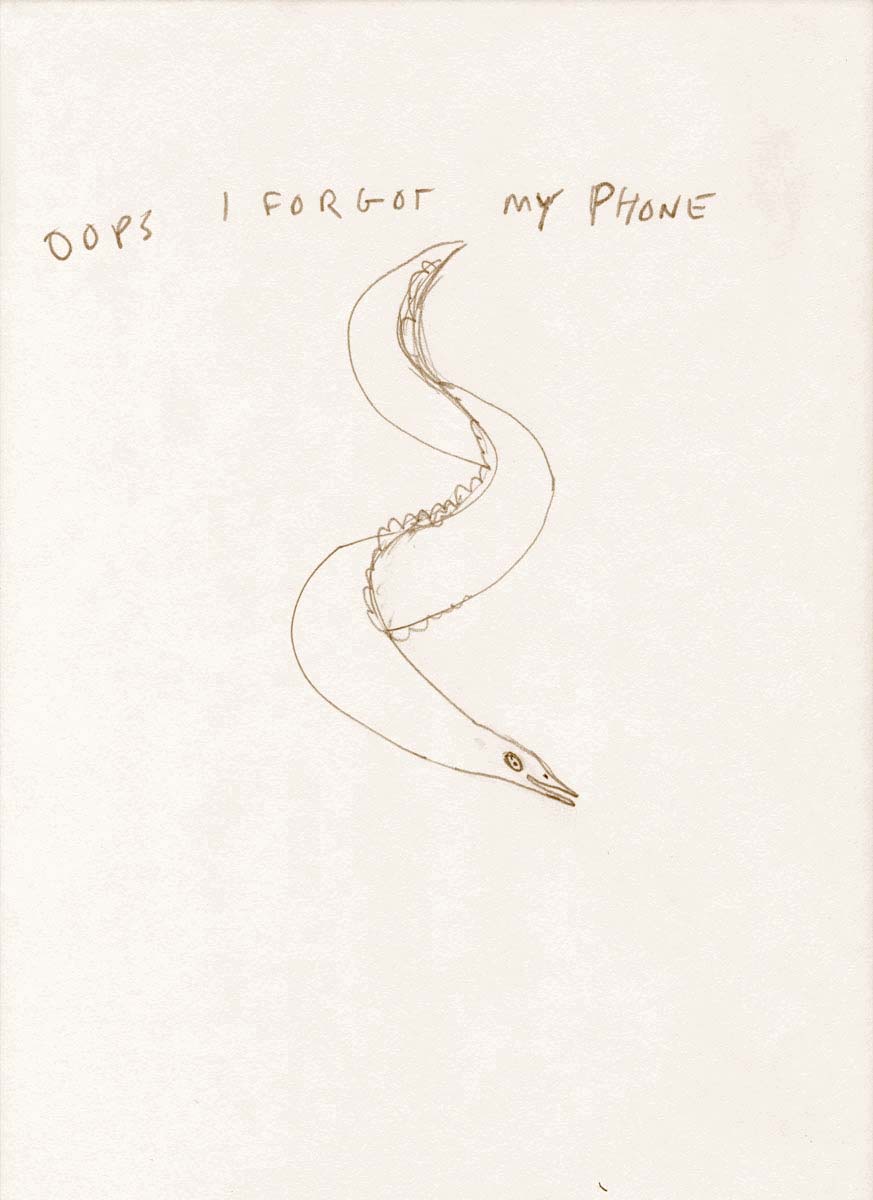 OOPS I FORGOT MY PHONE